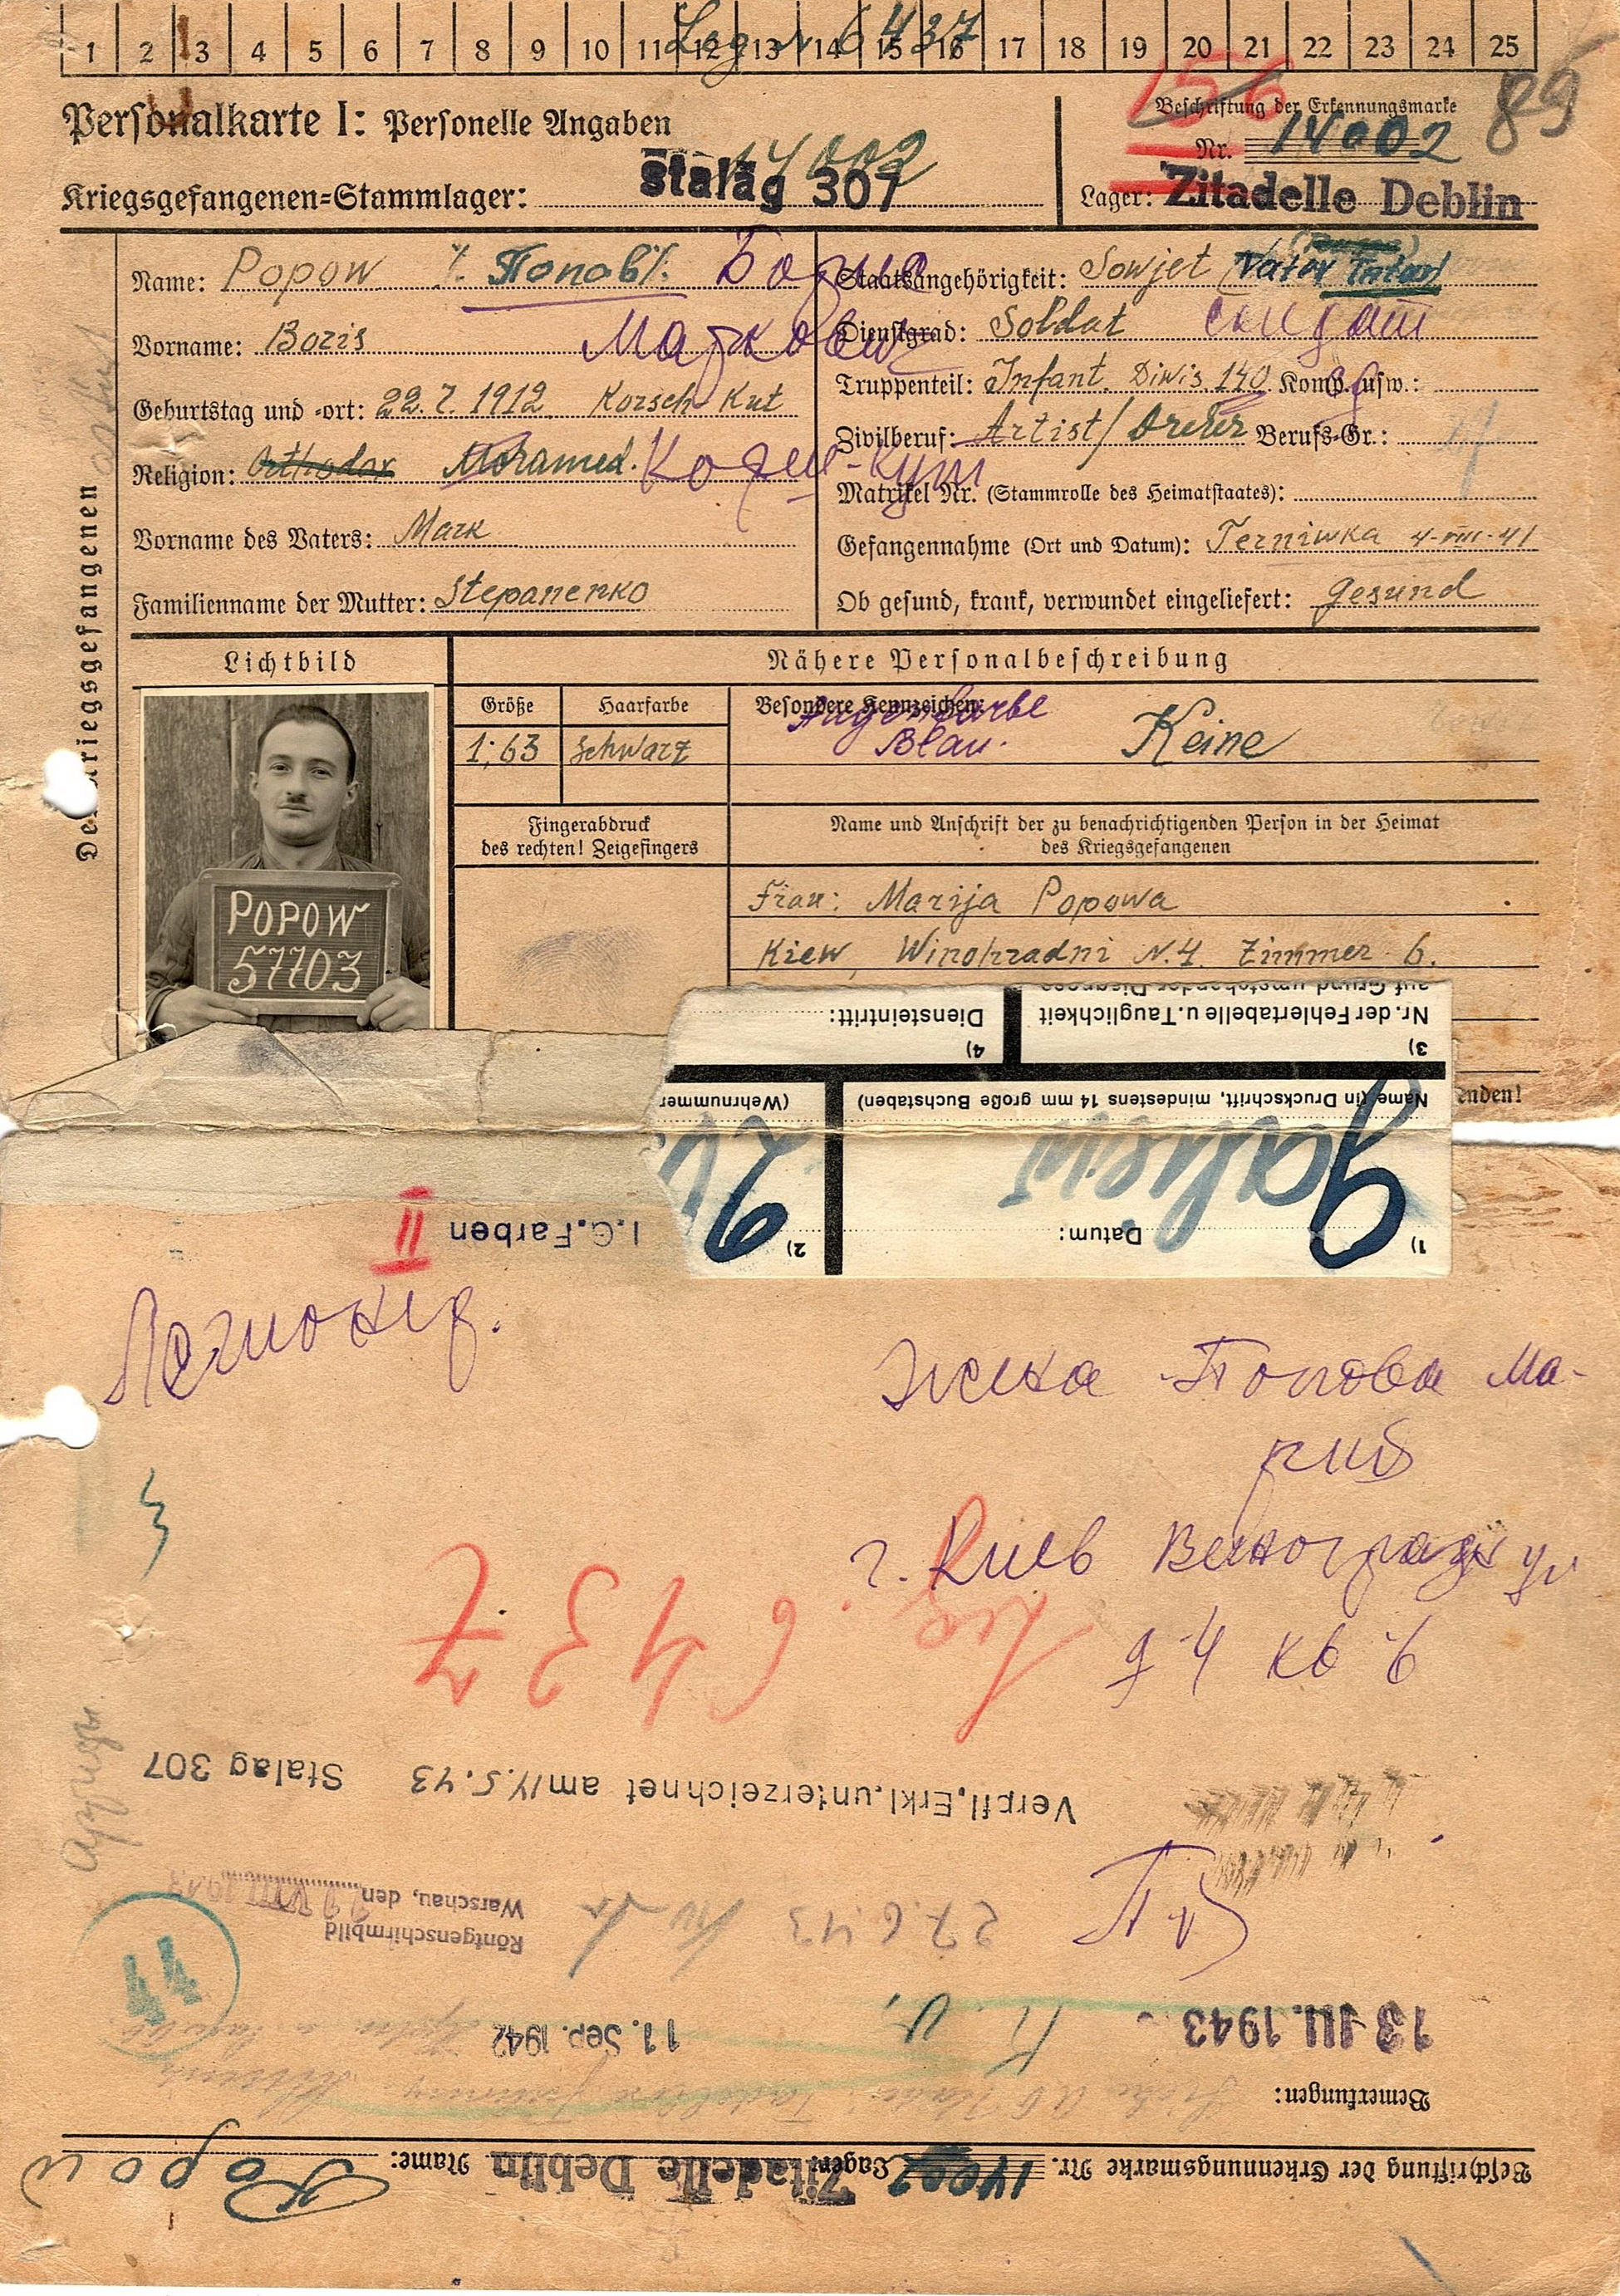 1 2 3 4 5 6 7 8 9 10 11 12 13 14 15 16 17 18 19 20 21 22 23 24 25
Leg. 6437
Personalkarte I: Personelle Angaben
14002
Kriegsgefangenen=Stammlager: Stalag 307
156
89
Beschriftung der Erkennungsmarke
Nr. 14002
Lager: Zitadelle Deblin
Des Kriegsgefangenen
Name: Popow %. Попов %. Борис
Vorname: Boris Маркович
Geburtstag und -ort: 22.7.1912 Korsch Kut
Religion: Orthodox Mohamed. Кориш-Кут
Vorname des Vaters: Mark
Familienname der Mutter: Stepanenko
Staatsangehörigkeit: Sowjet Vater Tatar
Dienstgrad: Soldat солдат
Truppenteil: Infant. Diwis. 140 Komp. usw.:
Zivilberuf: Artist / Dreher Berufs-Gr.:
Matrikel Nr. (Stammrolle des Heimatstaates):
Gefangennahme (Ort und Datum): Terniwka 4-VIII-41
Ob gesund, krank, verwundet eingeliefert: gesund
Lichtbild
Nähere Personalbeschreibung
Größe Haarfarbe Besondere Kennzeichen:
1,63 schwarz Augenfarbe Blau. Keine
POPOW
57703
Fingerabdruck
des rechten! Zeigefingers
Name und Anschrift der zu benachrichtigenden Person in der Heimat
des Kriegsgefangenen
Frau: Marija Popowa
Kiew, Winohradni N.4. Zimmer 6.
enden!
auf Grund umstehender Diagnose
3) Nr. der Fehlertabelle u. Tauglichkeit
4) Diensteintritt:
Name (in Druckschrift, mindestens 14 mm große Buchstaben)
(Wehrnummer
1) Datum:
2)
I.G.Farben II
Легионер.
Жена Попова Ма-
рия
г. Киев Виноградн ул
д 4 кв 6
Leg. 6437
Verpfl.Erkl.unterzeichnet am 14.5.43 Stalag 307
27.6.43
Röntgenschirmbild
Warschau, den VIII 1943
44
13 III. 1943
11. Sep. 1942
Bemerkungen:
Beschriftung der Erkennungsmarke Nr. 14002 Lager: Zitadelle Deblin Name: Popow